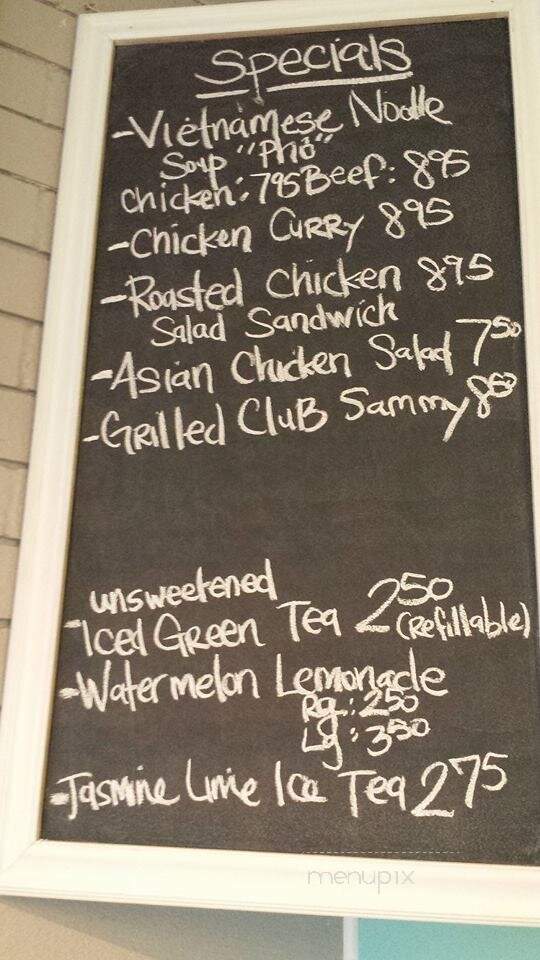 Specials
-Vietnamese Noodle
Soup "Phở"
chicken: 795 Beef: 895
-Chicken CURRY 895
-Roasted chicken 895
Salad Sandwich
-Asian Chicken Salad 750
-Grilled CluB Sammy 850
unsweetened
-Iced Green Tea 250
(Refillable)
-Watermelon Lemonade
Rg: 250
Lg: 350
-Jasmine Lime Ice Tea 275
menupix